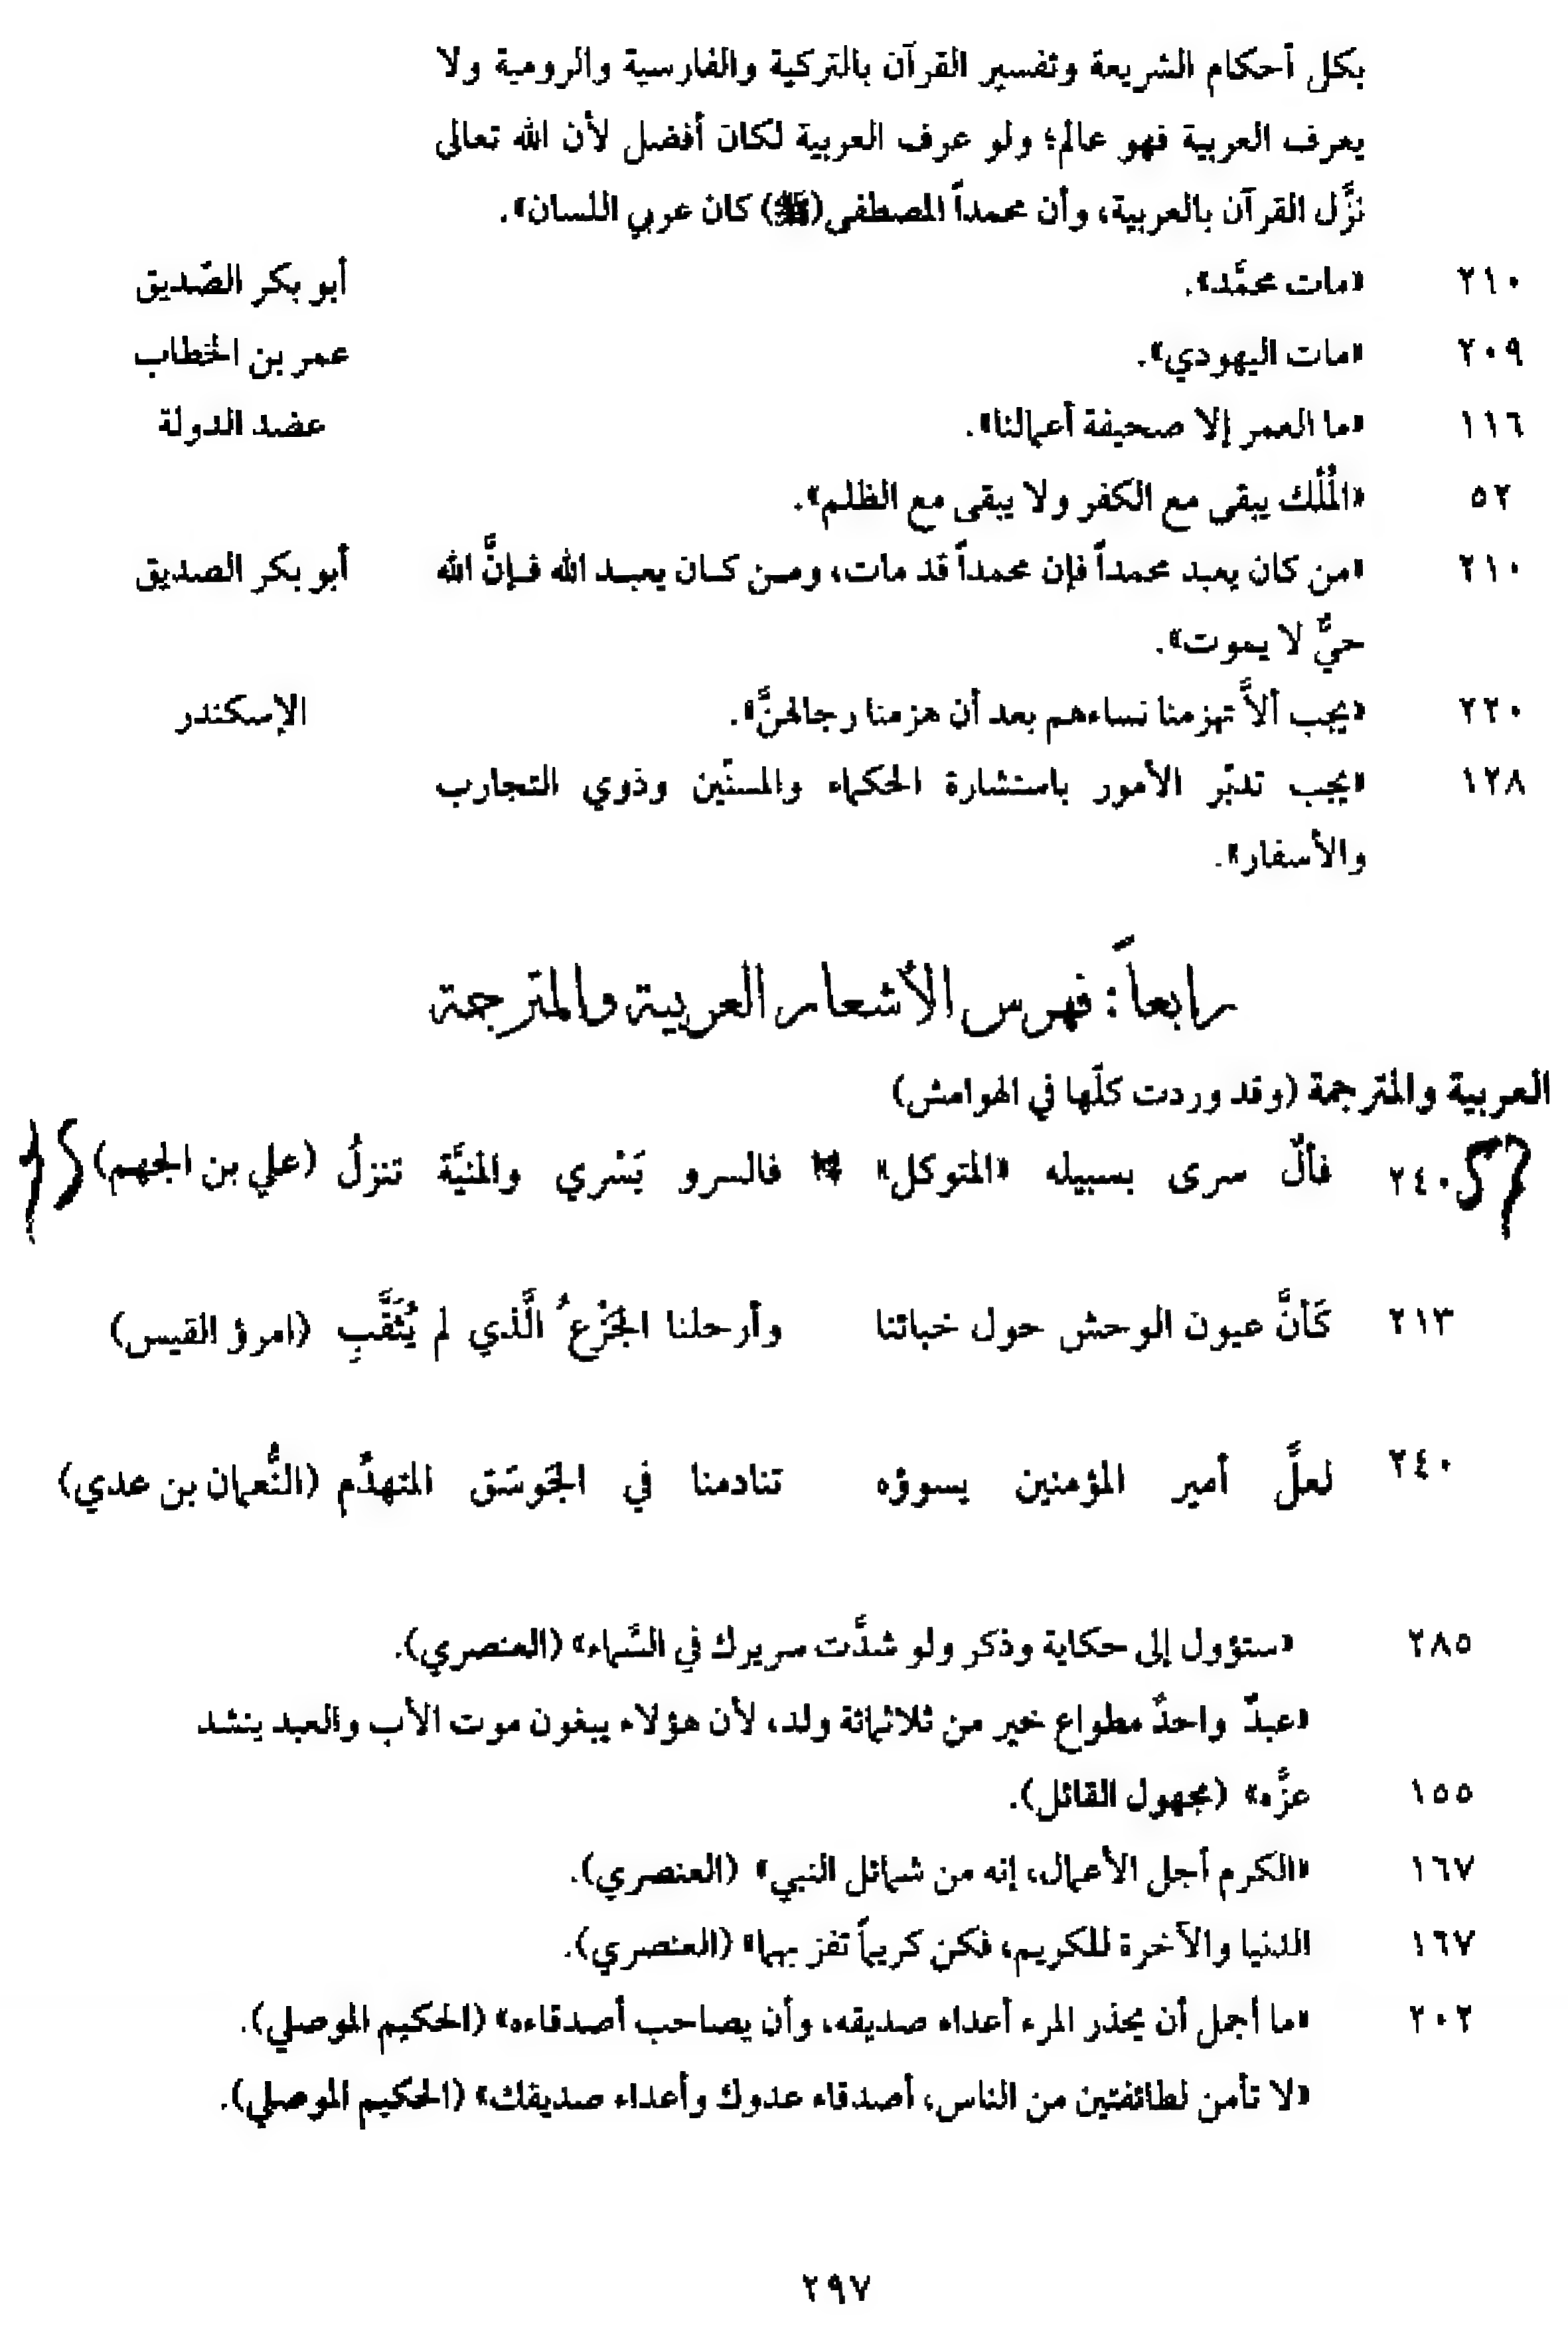 بكل أحكام الشريعة وتفسير القرآن بالتركية والفارسية والرومية ولا
يعرف العربية فهو عالم؛ ولو عرف العربية لكان أفضل لأن الله تعالى
نزَّل القرآن بالعربية، وأن محمداً المصطفى (ﷺ) كان عربي اللسان».
٢١٠ «مات محمَّد». أبو بكر الصّديق
٢٠٩ «مات اليهودي». عمر بن الخطاب
١١٦ «ما العمر إلا صحيفة أعمالنا». عضد الدولة
٥٢ «المُلْك يبقى مع الكفر ولا يبقى مع الظلم».
٢١٠ «من كان يعبد محمداً فإن محمداً قد مات، ومن كان يعبد الله فإنَّ الله أبو بكر الصديق
حيٌّ لا يموت».
٢٢٠ «يجب ألاَّ تهزمنا نساءهم بعد أن هزمنا رجالهنَّ». الإسكندر
١٢٨ «يجب تدبّر الأمور باستشارة الحكماء والمسنّين وذوي التجارب
والأسفار».
رابعاً: فهرس الأشعار العربية والمترجمة
العربية والمترجمة (وقد وردت كلّها في الهوامش)
٢٤٠ فألٌ سرى بسبيله «المتوكل» فالسرو يَسْري والمنيَّة تنزلُ (علي بن الجهم)
٢١٣ كَأنَّ عيون الوحش حول خبائنا وأرحلنا الجَزْعُ الَّذي لم يُثَقَّبِ (امرؤ القيس)
٢٤٠ لعلَّ أمير المؤمنين يسوؤه تنادمنا في الجَوسَق المتهدِّم (النُّعمان بن عدي)
٢٨٥ «ستؤول إلى حكاية وذكر ولو شدَّت سريرك في السَّماء» (العنصري).
«عبدٌ واحدٌ مطواع خير من ثلاثمائة ولد، لأن هؤلاء يبغون موت الأب والعبد ينشد
١٥٥ عزَّه» (مجهول القائل).
١٦٧ «الكرم أجل الأعمال، إنه من شمائل النبي» (العنصري).
١٦٧ الدنيا والآخرة للكريم، فكن كريماً تفز بهما» (العنصري).
٢٠٢ «ما أجمل أن يحذر المرء أعداء صديقه، وأن يصاحب أصدقاءه» (الحكيم الموصلي).
«لا تأمن لطائفتين من الناس، أصدقاء عدوك وأعداء صديقك» (الحكيم الموصلي).
٢٩٧